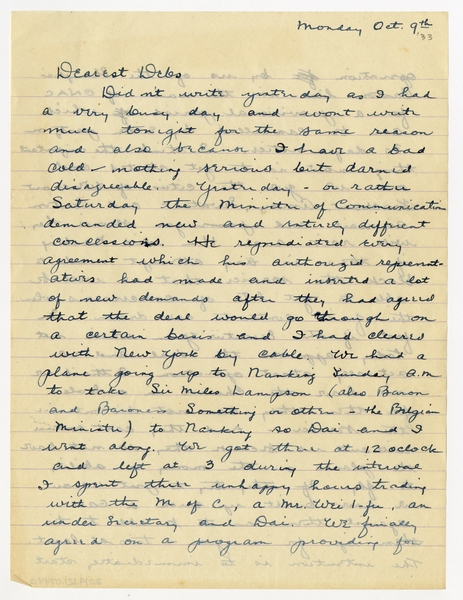 Monday Oct. 9th
'33
Dearest Debs
Didn't write yesterday as I had
a very busy day and wont write
much tonight for the same reason
and also because I have a bad
cold — nothing serious but darned
disagreeable. Yesterday - or rather
Saturday the Ministry of Communication
demanded new and entirely different
concessions. He repudiated every
agreement which his authorized represent-
atives had made and inserted a lot
of new demands after they had agreed
that the deal would go through on
a certain basis and I had cleared
with New York by cable. We had a
plane going up to Nanking Sunday A.M
to take Sir Miles Lampson (also Baron
and Baroness Something or other - the Belgian
Minister) to Nanking so Dai and I
went along. We got there at 12 oclock
and left at 3 during the interval
I spent three unhappy hours trading
with the M of C, a Mr. Wei I-fu, an
under Secretary and Dai. We finally
agreed on a program providing for